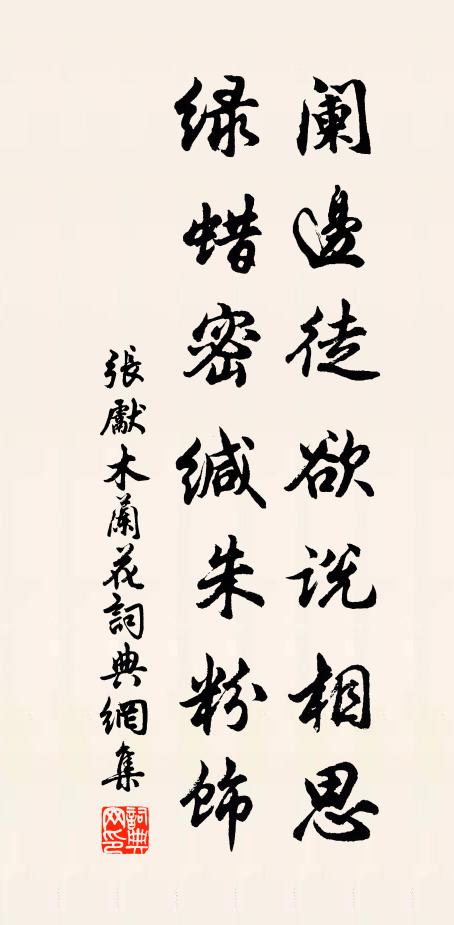 阑邊徒欲说相思
绿蜡密缄朱粉饰
張獻木蘭花詞典網集
詞典网印